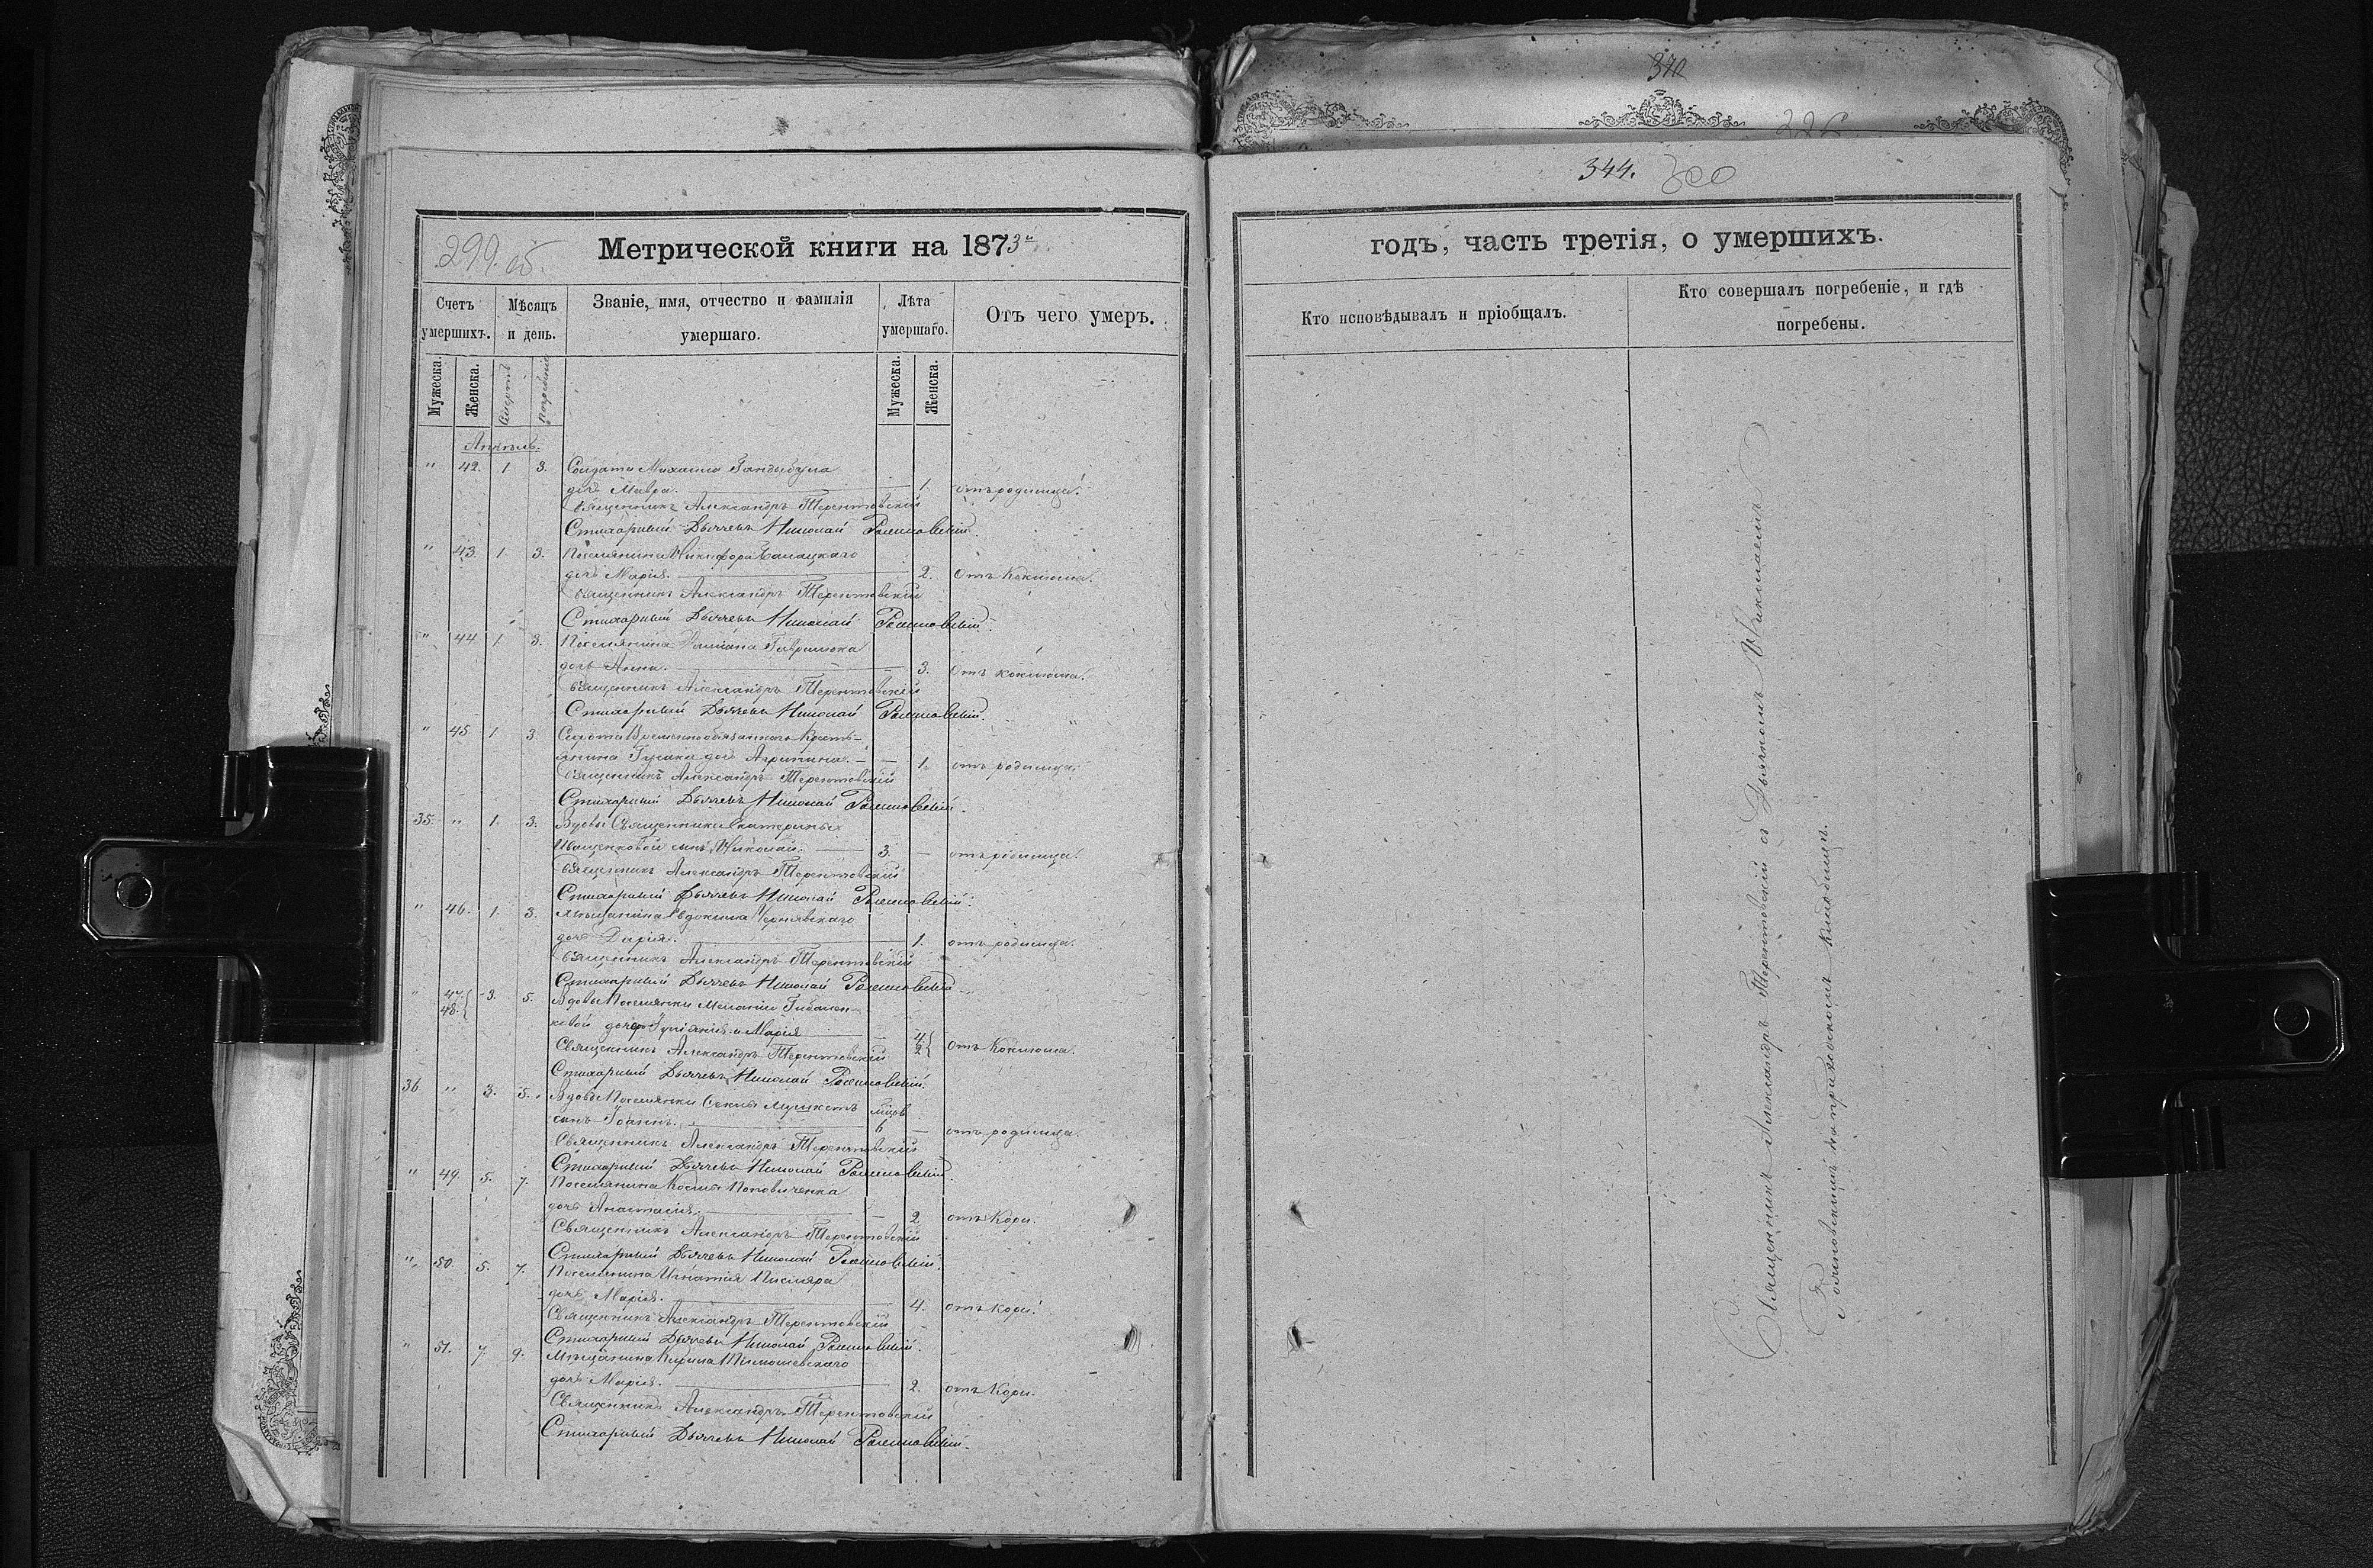 370
344. 300
299 об.
Метрической книги на 1873й
Счетъ умершихъ.
Мѣсяцъ и день.
Званіе, имя, отчество и фамилія умершаго.
Лѣта умершаго.
Отъ чего умеръ.
Мужеска.
Женска.
Смерти
погребенія
Мужеска.
Женска.
Апрѣль.
" 42. 1 3. Солдата Михаила
дочь Мавра. 1. отъ родимца.
Священникъ Александръ Терентовскій
Стихарный Дьячекъ Николай
" 43. 1. 3. Поселянина Никифора
дочь Марія. 2. Отъ Коклюша.
Священникъ Александръ Терентовскій
Стихарный Дьячекъ Николай
" 44 1. 3. Поселянина Даміана Гаврилюка
дочь Анна. 3. Отъ коклюша.
Священникъ Александръ Терентовскій
Стихарный Дьячекъ Николай
" 45. 1. 3. Сирота Временнообязаннаго Кресть-
янина Гусака дочь Агрипина. 1. отъ родимца.
Священникъ Александръ Терентовскій
Стихарный Дьячекъ Николай
35. " 1. 3. Вдовы Священника Екатерины
Иващенковой сынъ Николай. 3. отъ родимца.
Священникъ Александръ Терентовскій
Стихарный Дьячекъ Николай
" 46. 1. 3. Мѣщанина Евдокима Чернявскаго
дочь Дарія. 1. отъ родимца.
Священникъ Александръ Терентовскій
Стихарный Дьячекъ Николай
" 47. 48. 3. 5. Вдовы Поселянки Меланіи
ковой дочери Іуліанія и Марія 4. 2 Отъ Коклюша.
Священникъ Александръ Терентовскій
Стихарный Дьячекъ Николай
36. " 3. 5. Вдовы Поселянки
сынъ Іоаннъ. 6 отъ родимца.
Священникъ Александръ Терентовскій
Стихарный Дьячекъ Николай
" 49. 5. 7. Поселянина Космы Поповиченка
дочь Анастасія. 2 отъ Кори.
Священникъ Александръ Терентовскій
Стихарный Дьячекъ Николай
" 50. 5. 7. Поселянина Игнатія Писляра
дочь Марія. 4. отъ кори.
Священникъ Александръ Терентовскій
Стихарный Дьячекъ Николай
" 51. 7. 9. Мѣщанина Кирила Тимошевскаго
дочь Марія. 2. отъ Кори.
Священникъ Александръ Терентовскій
Стихарный Дьячекъ Николай
годъ, часть третія, о умершихъ.
Кто исповѣдывалъ и пріобщалъ.
Кто совершалъ погребеніе, и гдѣ погребены.
Священникъ Александръ Терентовскій съ Дьячкомъ Николаемъ
на приходскомъ кладбищѣ.